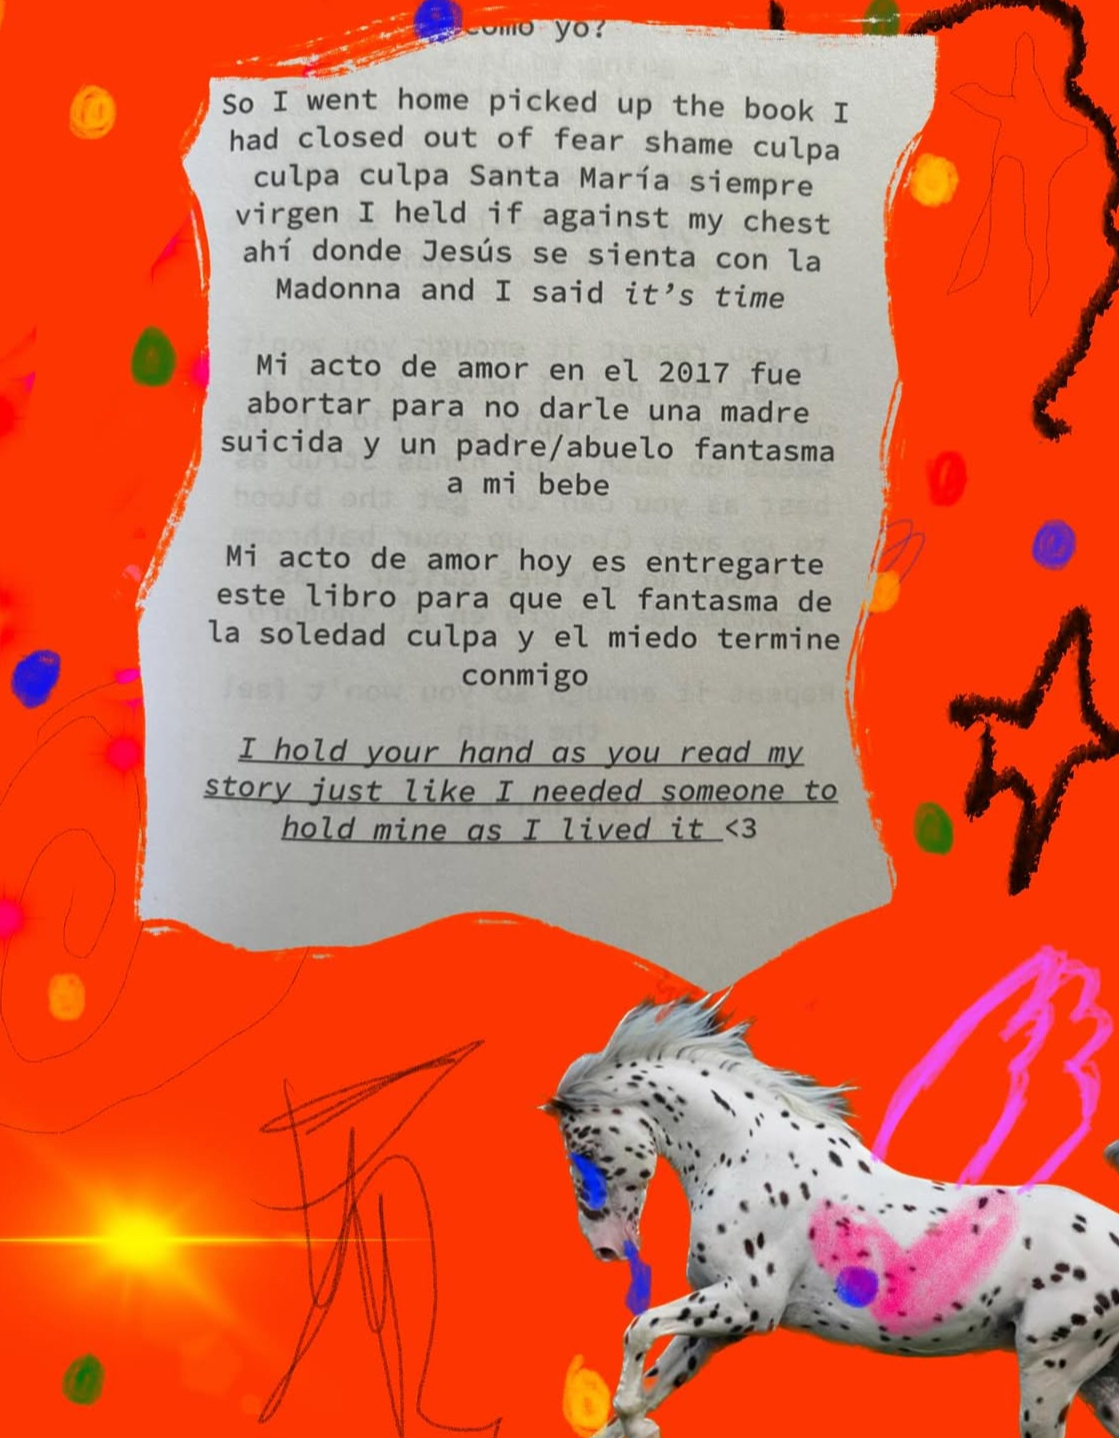 como yo?
So I went home picked up the book I
had closed out of fear shame culpa
culpa culpa Santa María siempre
virgen I held if against my chest
ahí donde Jesús se sienta con la
Madonna and I said it's time
Mi acto de amor en el 2017 fue
abortar para no darle una madre
suicida y un padre/abuelo fantasma
a mi bebe
Mi acto de amor hoy es entregarte
este libro para que el fantasma de
la soledad culpa y el miedo termine
conmigo
I hold your hand as you read my
story just like I needed someone to
hold mine as I lived it <3